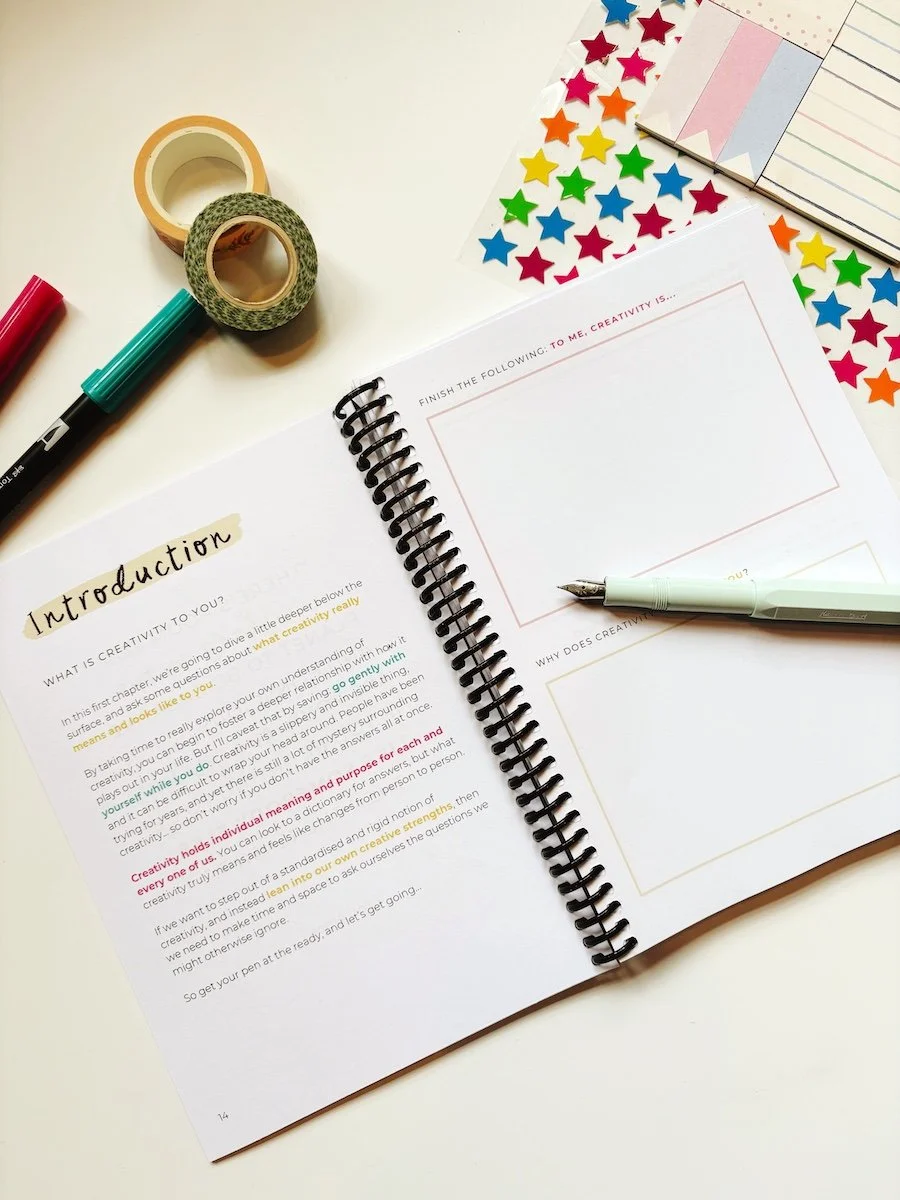 Introduction
WHAT IS CREATIVITY TO YOU?
In this first chapter, we're going to dive a little deeper below the
surface, and ask some questions about what creativity really
means and looks like to you.
By taking time to really explore your own understanding of
creativity, you can begin to foster a deeper relationship with how it
plays out in your life. But I'll caveat that by saying: go gently with
yourself while you do. Creativity is a slippery and invisible thing,
and it can be difficult to wrap your head around. People have been
trying for years, and yet there is still a lot of mystery surrounding
creativity – so don't worry if you don't have the answers all at once.
Creativity holds individual meaning and purpose for each and
every one of us. You can look to a dictionary for answers, but what
creativity truly means and feels like changes from person to person.
If we want to step out of a standardised and rigid notion of
creativity, and instead lean into our own creative strengths, then
we need to make time and space to ask ourselves the questions we
might otherwise ignore.
So get your pen at the ready, and let's get going...
14
FINISH THE FOLLOWING: TO ME, CREATIVITY IS...
WHY DOES CREATIVITY YOU?